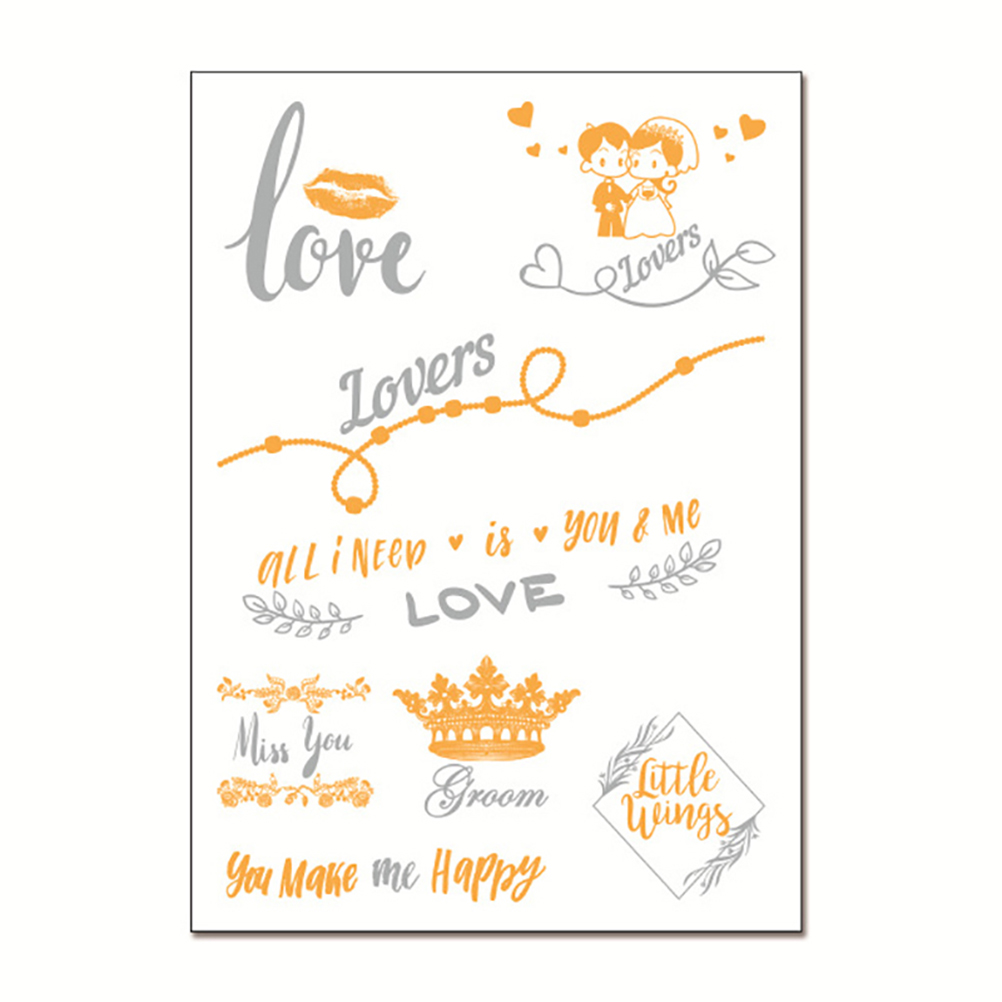 love
Lovers
Lovers
ALL i NEED is YOU & ME
LOVE
Miss You
Groom
Little
Wings
You Make me Happy